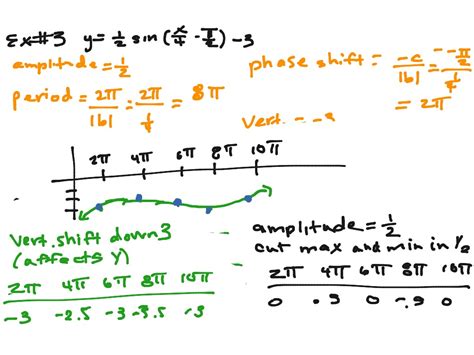 Ex#3 y = 1/2 sin (x/4 - π/2) - 3
amplitude = 1/2
phase shift = -c/|b| = --π/2 / 1/4
= 2π
period = 2π/|b| = 2π/1/4 = 8π
Vert. - -3
2π 4π 6π 8π 10π
vert. shift down 3
(affects y)
2π 4π 6π 8π 10π
-3 -2.5 -3 -3.5 -3
amplitude = 1/2
cut max and min in 1/2
2π 4π 6π 8π 10π
0 .5 0 -.5 0